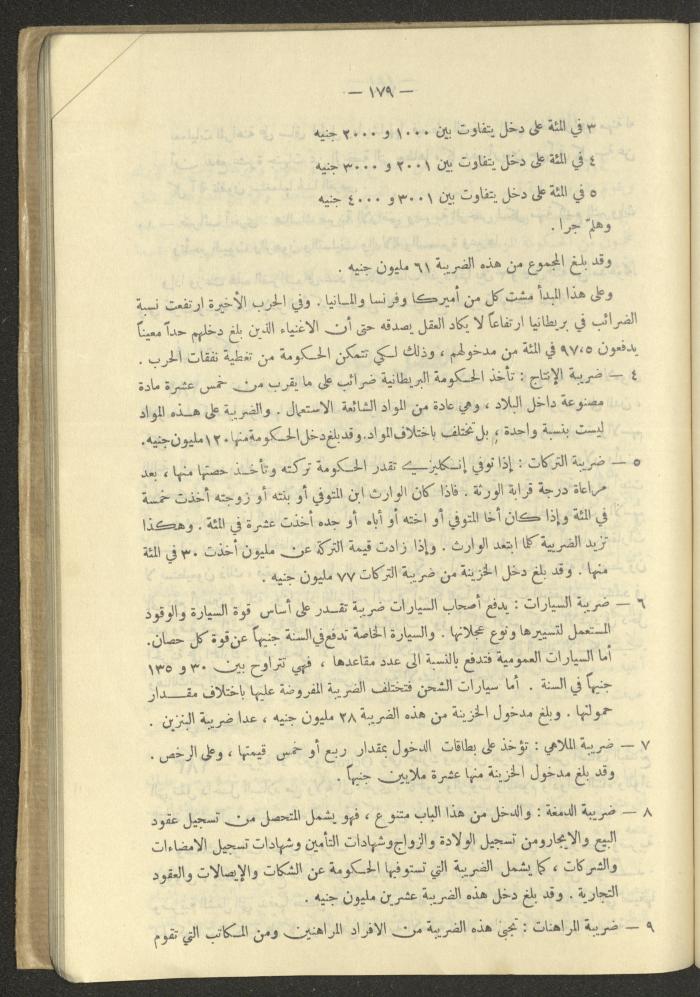 — ١٧٩ —
٣ في المئة على دخل يتفاوت بين ١٠٠٠ و ٢٠٠٠ جنيه
٤ في المئة على دخل يتفاوت بين ٢٠٠١ و ٣٠٠٠ جنيه
٥ في المئة على دخل يتفاوت بين ٣٠٠١ و ٤٠٠٠ جنيه
وهلمّ جرا .
وقد بلغ المجموع من هذه الضريبة ٦١ مليون جنيه .
وعلى هذا المبدأ مشت كل من أميركا وفرنسا والمانيا . وفي الحرب الأخيرة ارتفعت نسبة
الضرائب في بريطانيا ارتفاعاً لا يكاد العقل يصدقه حتى أن الاغنياء الذين بلغ دخلهم حداً معيناً
يدفعون ٩٧،٥ في المئة من مدخولهم ، وذلك لكي تتمكن الحكومة من تغطية نفقات الحرب .
٤ — ضريبة الإنتاج : تأخذ الحكومة البريطانية ضرائب على ما يقرب من خمس عشرة مادة
مصنوعة داخل البلاد ، وهي عادة من المواد الشائعة الاستعمال . والضريبة على هذه المواد
ليست بنسبة واحدة ، بل تختلف باختلاف المواد. وقد بلغ دخل الحكومة منها ١٢٠ مليون جنيه.
٥ — ضريبة التركات : إذا توفي إنكليزي تقدر الحكومة تركته وتأخذ حصتها منها ، بعد
مراعاة درجة قرابة الورثة . فاذا كان الوارث ابن المتوفي أو بنته أو زوجته أخذت خمسة
في المئة وإذا كان أخا المتوفي أو اخته أو أباه أو جده أخذت عشرة في المئة . وهكذا
تزيد الضريبة كما ابتعد الوارث . وإذا زادت قيمة التركة عن مليون أخذت ٣٠ في المئة
منها . وقد بلغ دخل الخزينة من ضريبة التركات ٧٧ مليون جنيه .
٦ — ضريبة السيارات : يدفع أصحاب السيارات ضريبة تقدر على أساس قوة السيارة والوقود
المستعمل لتسييرها ونوع عجلاتها . والسيارة الخاصة تدفع في السنة جنيهاً عن قوة كل حصان.
أما السيارات العمومية فتدفع بالنسبة الى عدد مقاعدها ، فهي تتراوح بين ٣٠ و ١٣٥
جنيهاً في السنة . أما سيارات الشحن فتختلف الضريبة المفروضة عليها باختلاف مقدار
حمولتها . وبلغ مدخول الخزينة من هذه الضريبة ٢٨ مليون جنيه ، عدا ضريبة البنزين .
٧ — ضريبة الملاهي : تؤخذ على بطاقات الدخول بمقدار ربع أو خمس قيمتها ، وعلى الرخص .
وقد بلغ مدخول الخزينة منها عشرة ملايين جنيهاً .
٨ — ضريبة الدمغة : والدخل من هذا الباب متنوع ، فهو يشمل المتحصل من تسجيل عقود
البيع والايجار ومن تسجيل الولادة والزواج وشهادات التأمين وشهادات تسجيل الامضاءات
والشركات ، كما يشمل الضريبة التي تستوفيها الحكومة عن الشكات والإيصالات والعقود
التجارية . وقد بلغ دخل هذه الضريبة عشرين مليون جنيه .
٩ — ضريبة المراهنات : تجبى هذه الضريبة من الافراد المراهنين ومن المكاتب التي تقوم